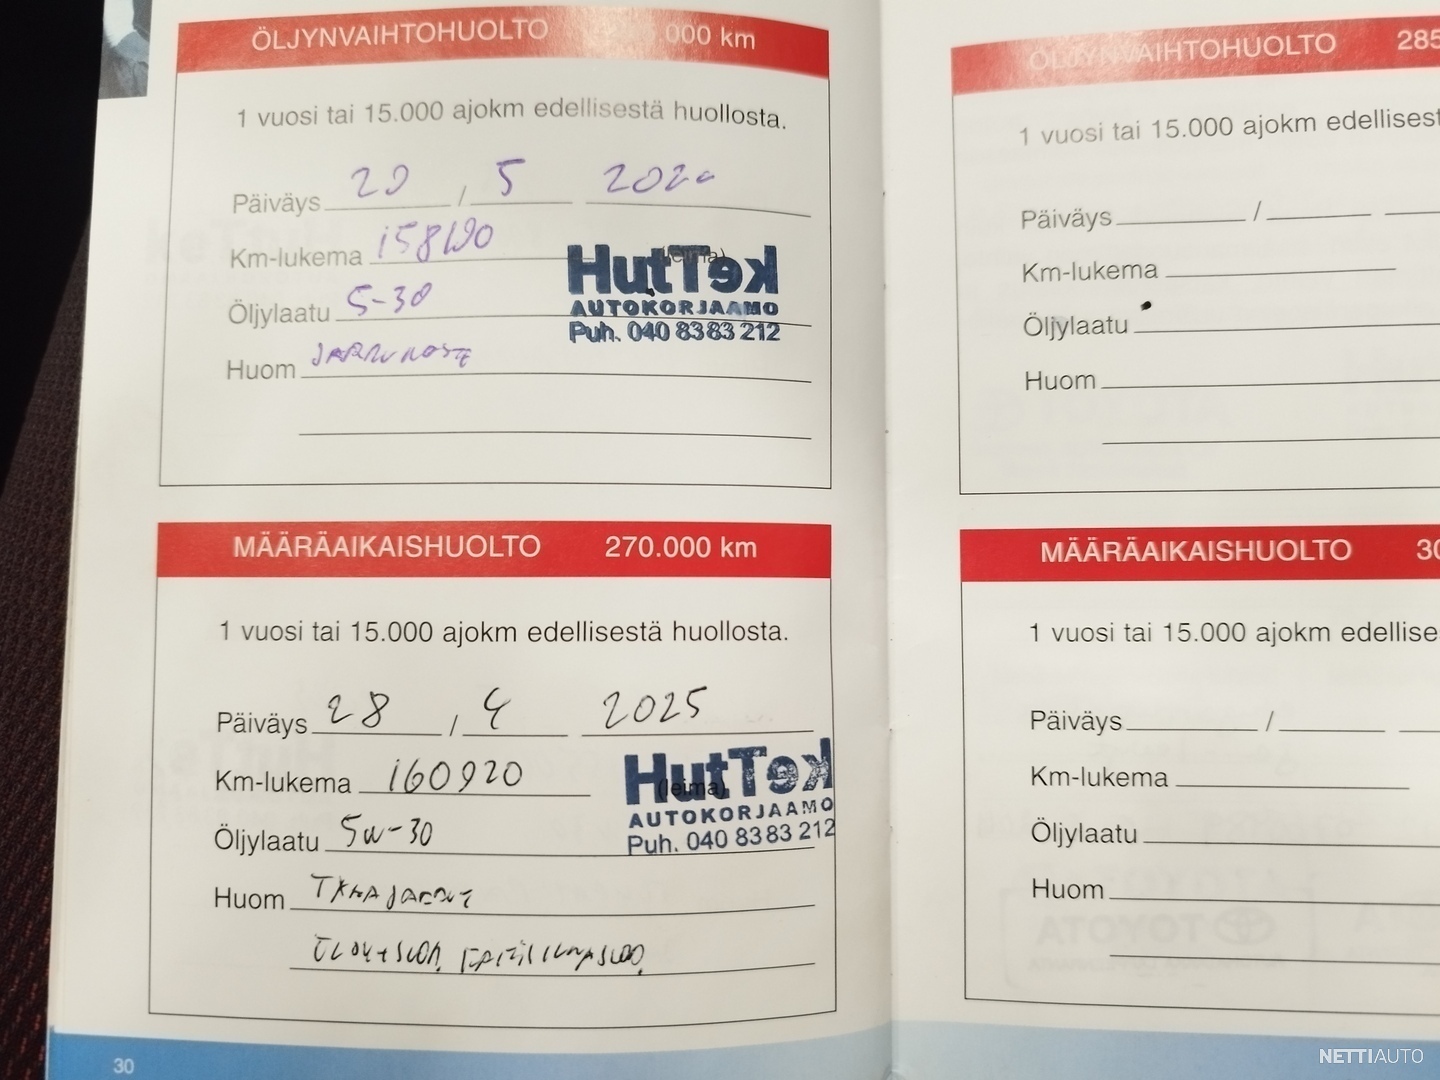 ÖLJYNVAIHTOHUOLTO 000 km
1 vuosi tai 15.000 ajokm edellisestä huollosta.
Päiväys 20 / 5
Km-lukema
(leima)
HutTek
AUTOKORJAAMO
Puh. 040 8383 212
Öljylaatu 5-30
Huom JARRUNOSTE
MÄÄRÄAIKAISHUOLTO 270.000 km
1 vuosi tai 15.000 ajokm edellisestä huollosta.
Päiväys 28 / 4 2025
Km-lukema 160920
(leima)
HutTek
AUTOKORJAAMO
Puh. 040 8383 212
Öljylaatu 5w-30
Huom
30
ÖLJYNVAIHTOHUOLTO 285
1 vuosi tai 15.000 ajokm edellisest
Päiväys /
Km-lukema
Öljylaatu
Huom
MÄÄRÄAIKAISHUOLTO 30
1 vuosi tai 15.000 ajokm edellise
Päiväys /
Km-lukema
Öljylaatu
Huom
TOYOTA
NETTIAUTO